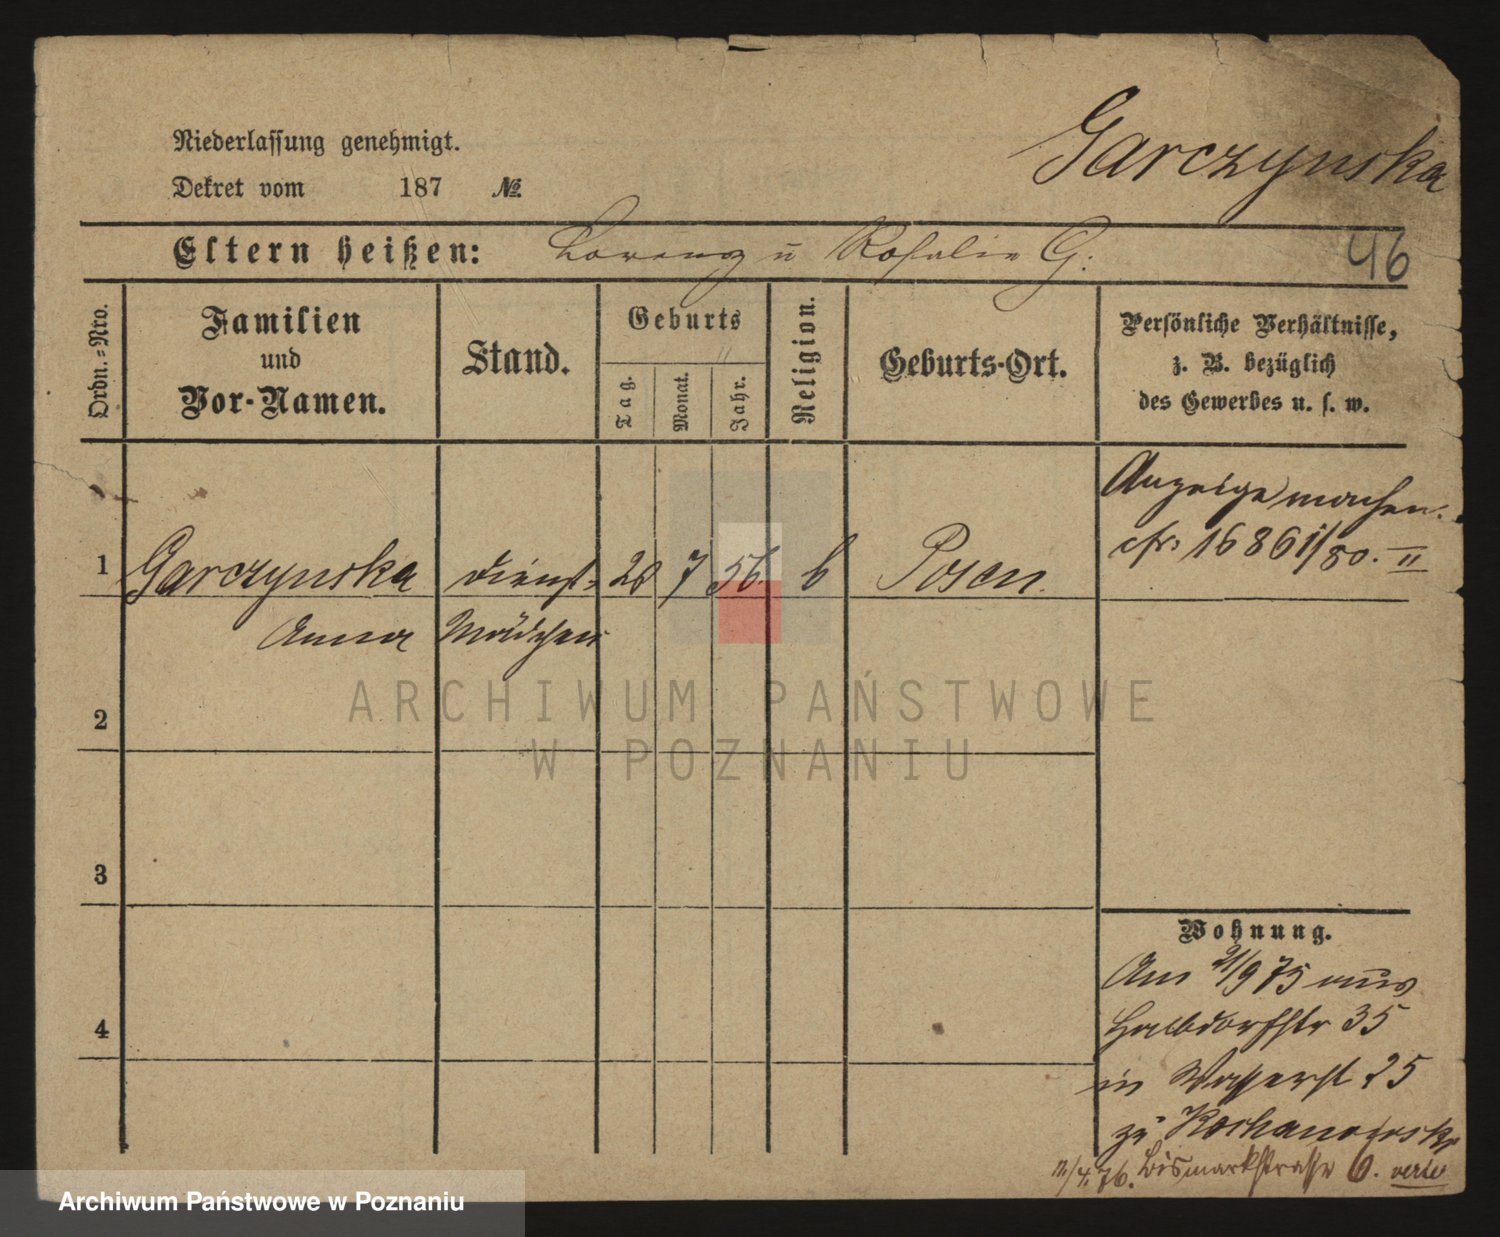 Niederlassung genehmigt.
Dekret vom 187 №
Garczynska
Eltern heißen: Lorenz u Rosalie G.
46
Ordn.-Nro.
Familien
und
Vor-Namen.
Stand.
Geburts
Tag.
Monat.
Jahr.
Religion.
Geburts-Ort.
Persönliche Verhältnisse,
z. B. bezüglich
des Gewerbes u. s. w.
Anzeige machen.
cfr. 16861/80. II
1 Garczynska Dienst- 20 7 56. Posen.
Anna Mädchen
2
3
4
Wohnung.
Am 21/9 75 aus
Halbdorfstr 35
in Wasserst 25
zu Kochanowski
11/4. 76. Bismarkstrasse 6. verte
ARCHIWUM PAŃSTWOWE
W POZNANIU
Archiwum Państwowe w Poznaniu